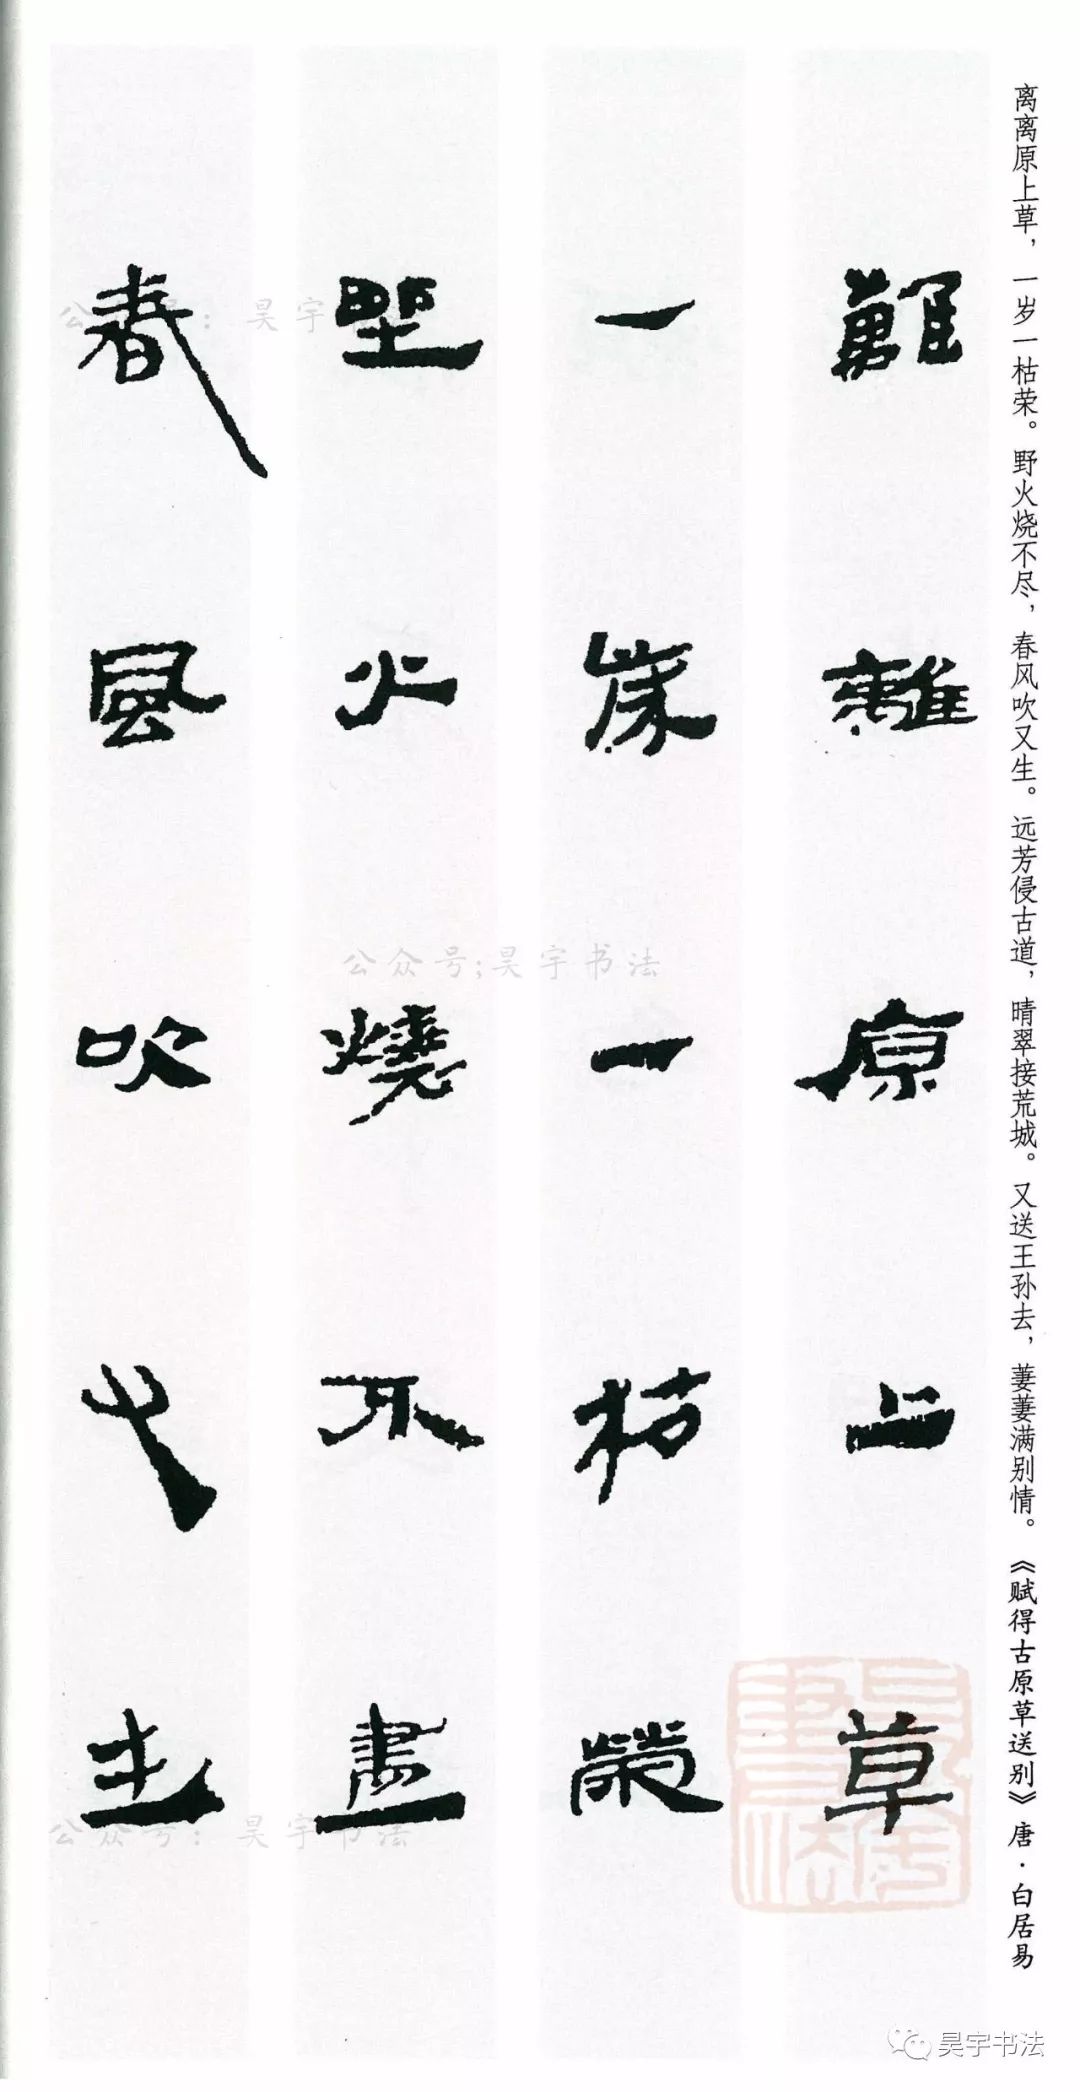 离离原上草，一岁一枯荣。野火烧不尽，春风吹又生。远芳侵古道，晴翠接荒城。又送王孙去，萋萋满别情。《赋得古原草送别》唐·白居易
離離原上草
一歲一枯榮
野火燒不盡
春風吹又生
公众号：昊宇
公众号;昊宇书法
公众号：昊宇书法
昊宇书法
昊宇书法